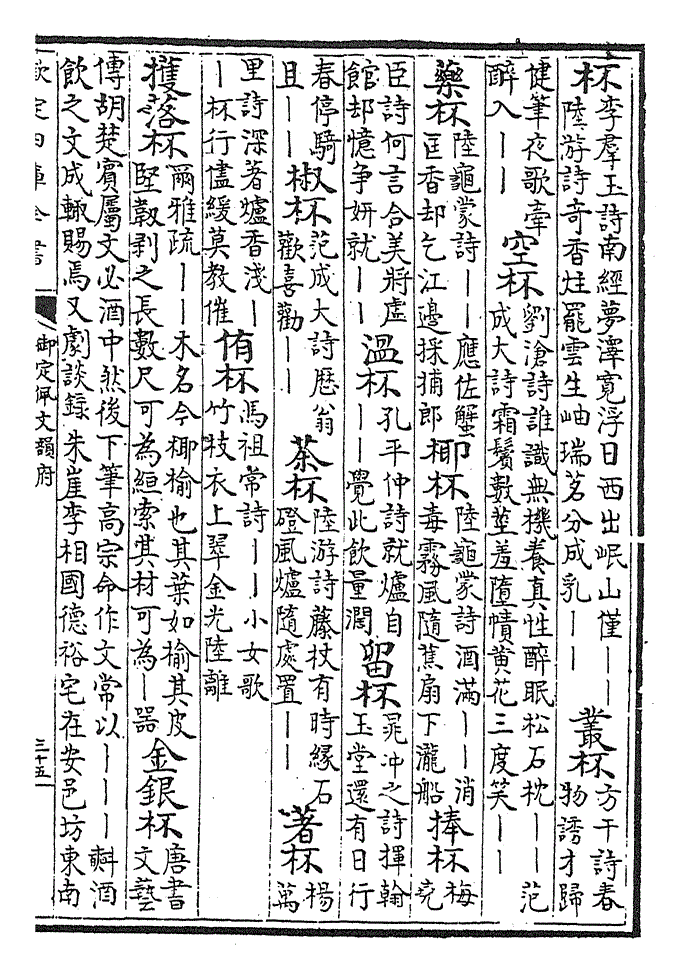 杯李羣玉詩南經夢澤寛浮日西出岷山僅｜｜
陸游詩奇香炷罷雲生岫瑞茗分成乳｜｜
叢杯方干詩春
物誘才歸
健筆夜歌牽
醉入｜｜
空杯劉滄詩誰識無機養真性醉眠松石枕｜｜范
成大詩霜鬢數莖羞墮幘黄花三度笑｜｜
藥杯陸龜蒙詩｜｜應佐蟹
匡香却乞江邊採捕郎
椰杯陸龜蒙詩酒滿｜｜消
毒霧風隨蕉扇下瀧船
捧杯梅
堯
臣詩何言合美將虛
館却憶争妍就｜｜
温杯孔平仲詩就爐自
｜｜覺此飲量濶
留杯晁冲之詩揮翰
玉堂還有日行
春停騎
且｜｜
椒杯范成大詩厯翁
歡喜勸｜｜
茶杯陸游詩藤杖有時縁石
磴風爐隨處置｜｜
著杯楊
萬
里詩深著爐香淺｜
｜杯行儘緩莫教催
侑杯馮祖常詩｜｜小女歌
竹枝衣上翠金光陸離
檴落杯爾雅疏｜｜｜木名今椰榆也其葉如榆其皮
堅韌剥之長數尺可為絚索其材可為｜器
金銀杯唐書
文藝
傳胡楚賓屬文必酒中然後下筆高宗命作文常以｜｜｜㪺酒
飲之文成輙賜焉又劇談錄朱崖李相國德裕宅在安邑坊東南
欽定四庫全書
御定佩文韻府
三十五